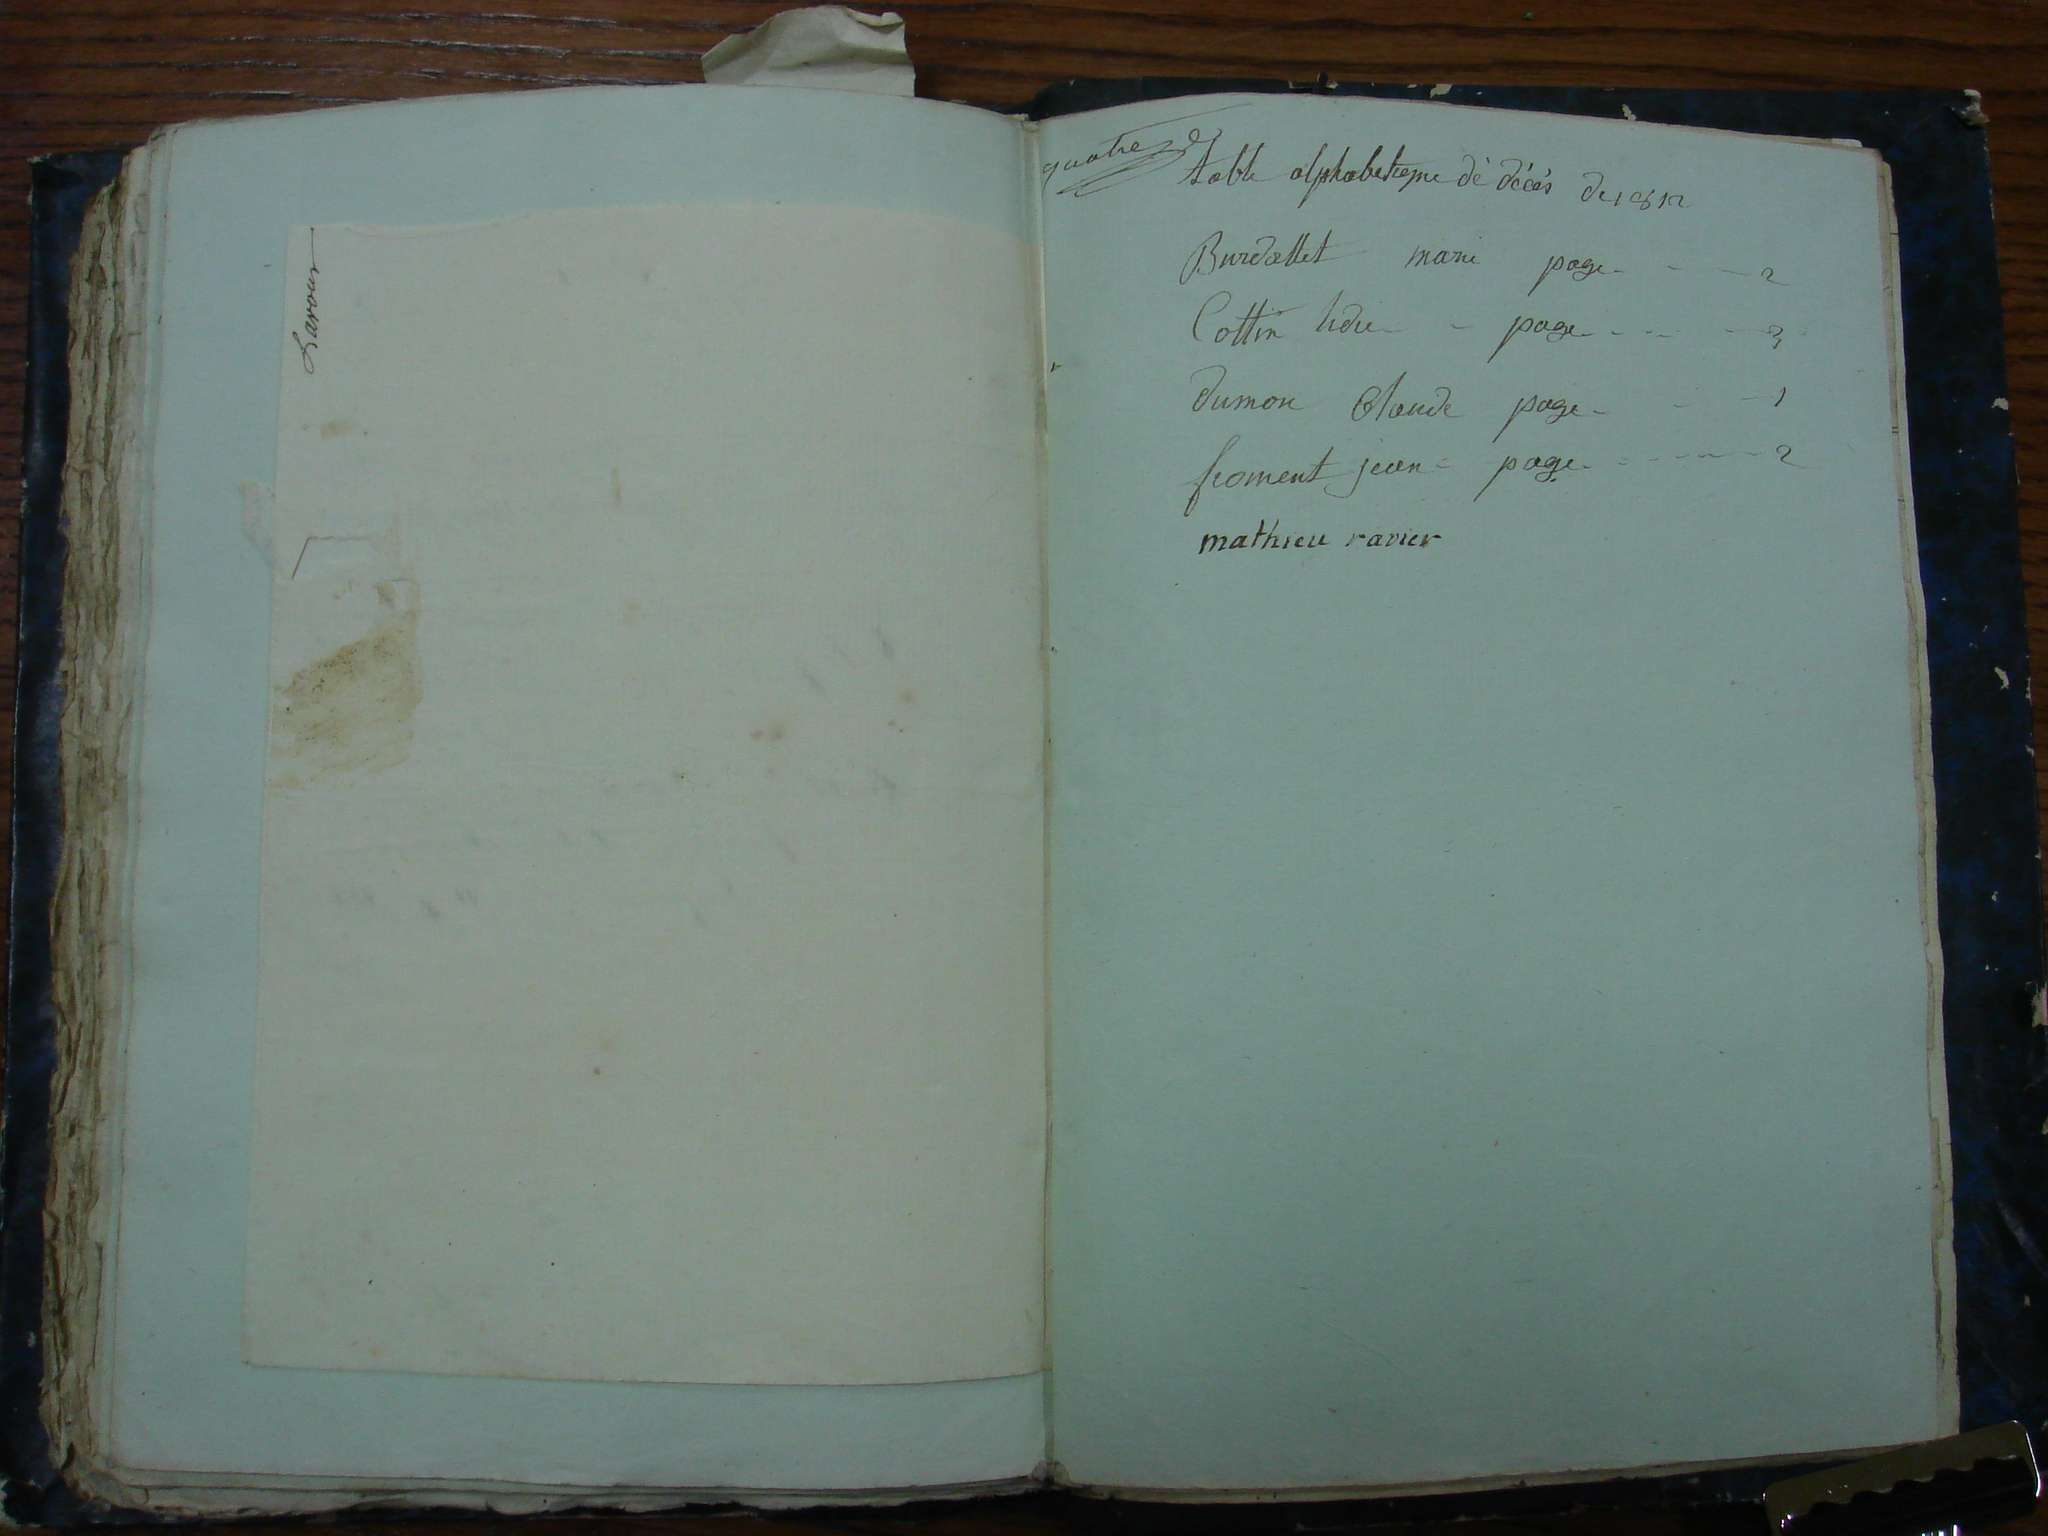 Lavour
quatre
table alphabetieque dè décés de 1812
Burdallet marie page - - - 2
Cottin lidie - - page - - - - 3
dumon Claude page - - - 1
froment jean - page - - - - - 2
mathieu ravier